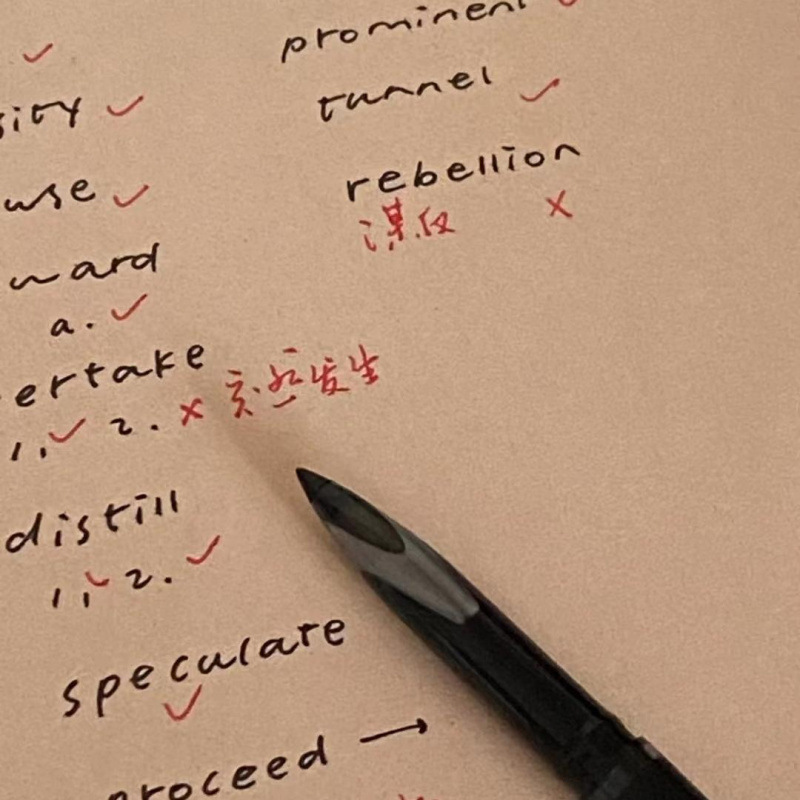 sity
use
ward
a.
ertake
1. 2. 突然发生
distill
1, 2.
speculate
proceed →
prominent
tunnel
rebellion
谋反